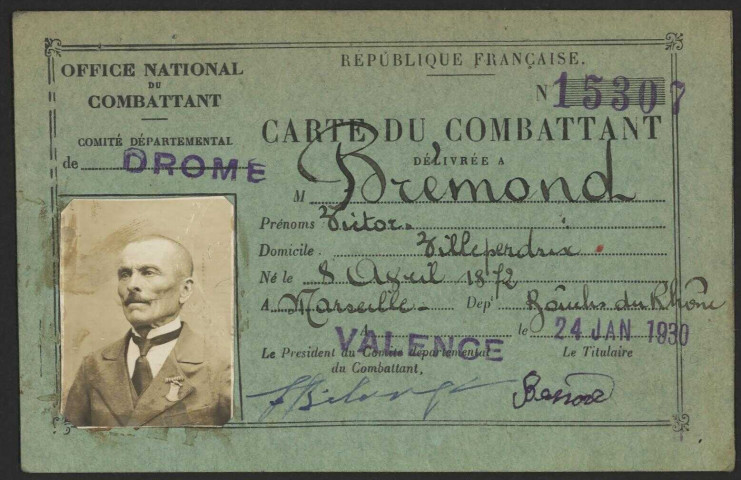 OFFICE NATIONAL
DU
COMBATTANT
COMITÉ DÉPARTEMENTAL
de DROME
RÉPUBLIQUE FRANÇAISE.
N 15307
CARTE DU COMBATTANT
DÉLIVRÉE A
M Brémond
Prénoms Victor
Domicile . Villeperdrix
Né le 8 Avril 1872
A Marseille Dep' Bouches du Rhône
VALENCE le 24 JAN 1930
Le President du Comité départemental
du Combattant.
Le Titulaire